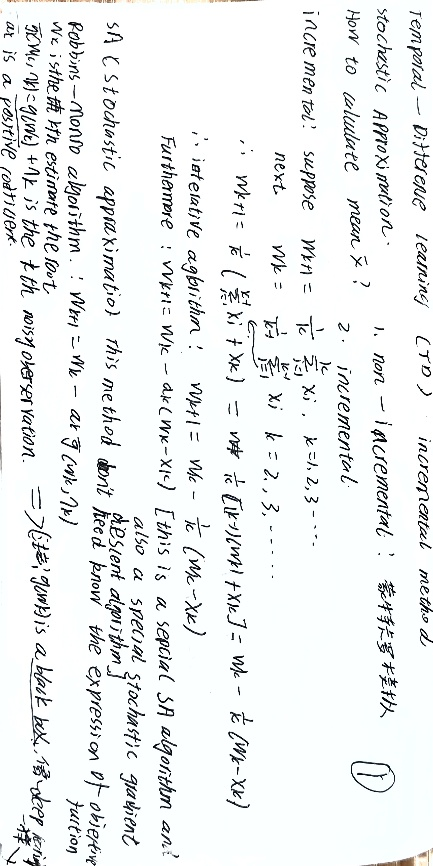 Temporal - Difference learning (TD) incremental method
stochastic Approximation.
How to calculate mean x̄ ? 1. non - incremental : 蒙特卡罗 ①
2. incremental
incremental: suppose Wk+1 = 1/k Σ(i=1→k) xi, k=1,2,3 ----
next Wk = 1/(k-1) Σ(i=1→k-1) xi k=2,3,------
∴ Wk+1 = 1/k (Σ(i=1→k-1) xi + xk) = 1/k [(k-1)Wk + xk] = Wk - 1/k (Wk-xk)
∴ interative aglorithm : Wk+1 = Wk - 1/k (Wk-xk)
Furthermore : Wk+1 = Wk - ak (Wk-xk) [this is a sepcial SA algorithm and
also a special stochastic gradient
descent algorithm]
SA (stochastic approximatio) this method don't need know the expression of objective
fuction
Robbins-Monro algorithm : Wk+1 = Wk - ak g̃(Wk,ηk)
Wk is the kth estimate the root
g̃(Wk,ηk)=g(Wk)+ηk is the kth noisy oberservation. => (注: g(Wk) is a black box, 像 deep
一样)
ak is a positive coefficient